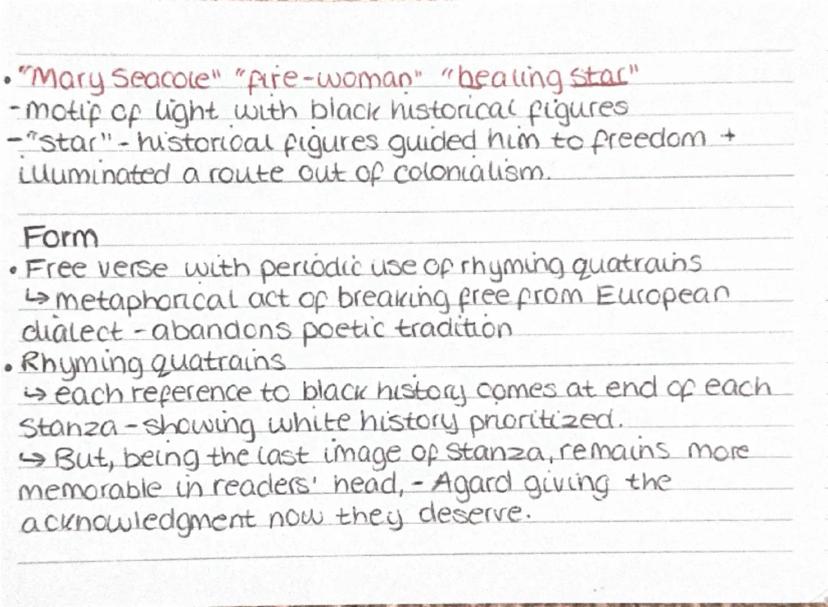 • "Mary Seacole" "fire-woman" "healing star"
- motif of light with black historical figures
- "star" - historical figures guided him to freedom +
illuminated a route out of colonialism.
Form
• Free verse with periodic use of rhyming quatrains
↳ metaphorical act of breaking free from European
dialect - abandons poetic tradition
• Rhyming quatrains
↳ each reference to black history comes at end of each
stanza - showing white history prioritized.
↳ But, being the last image of stanza, remains more
memorable in readers' head, - Agard giving the
acknowledgment now they deserve.